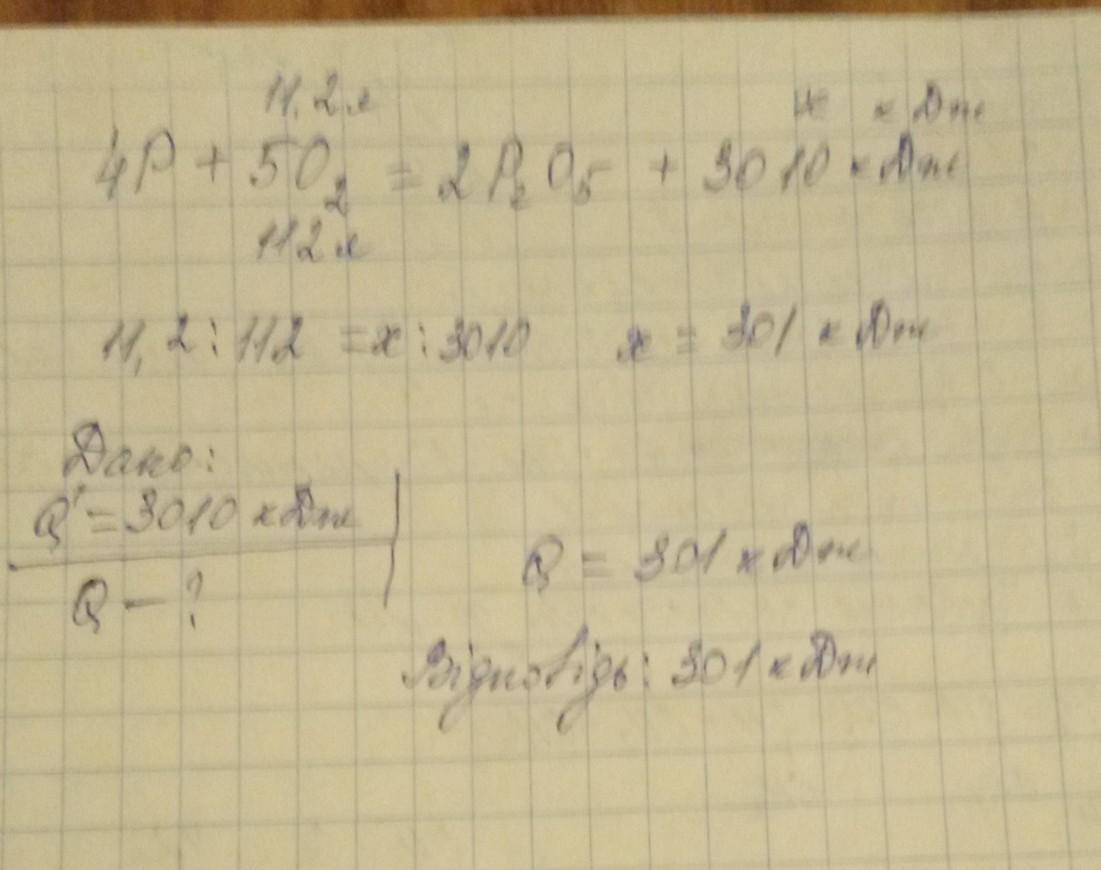 11,2л x кДж
4P + 5O₂ = 2P₂O₅ + 3010 кДж
112л
11,2 : 112 = x : 3010 x = 301 кДж
Дано:
Q' = 3010 кДж
Q – ? Q = 301 кДж
Відповідь: 301 кДж